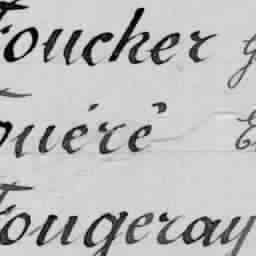 Foucher
Fouéré
Fougeray